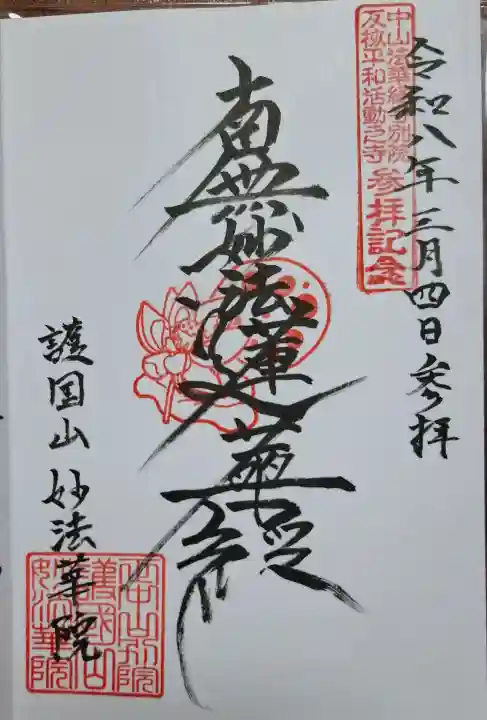 令和八年三月四日参拝
中山法華経寺別院
反核平和活動之寺
参拝記念
南無妙法蓮華経
護国山妙法華院
中山別院
護國山
妙法華院